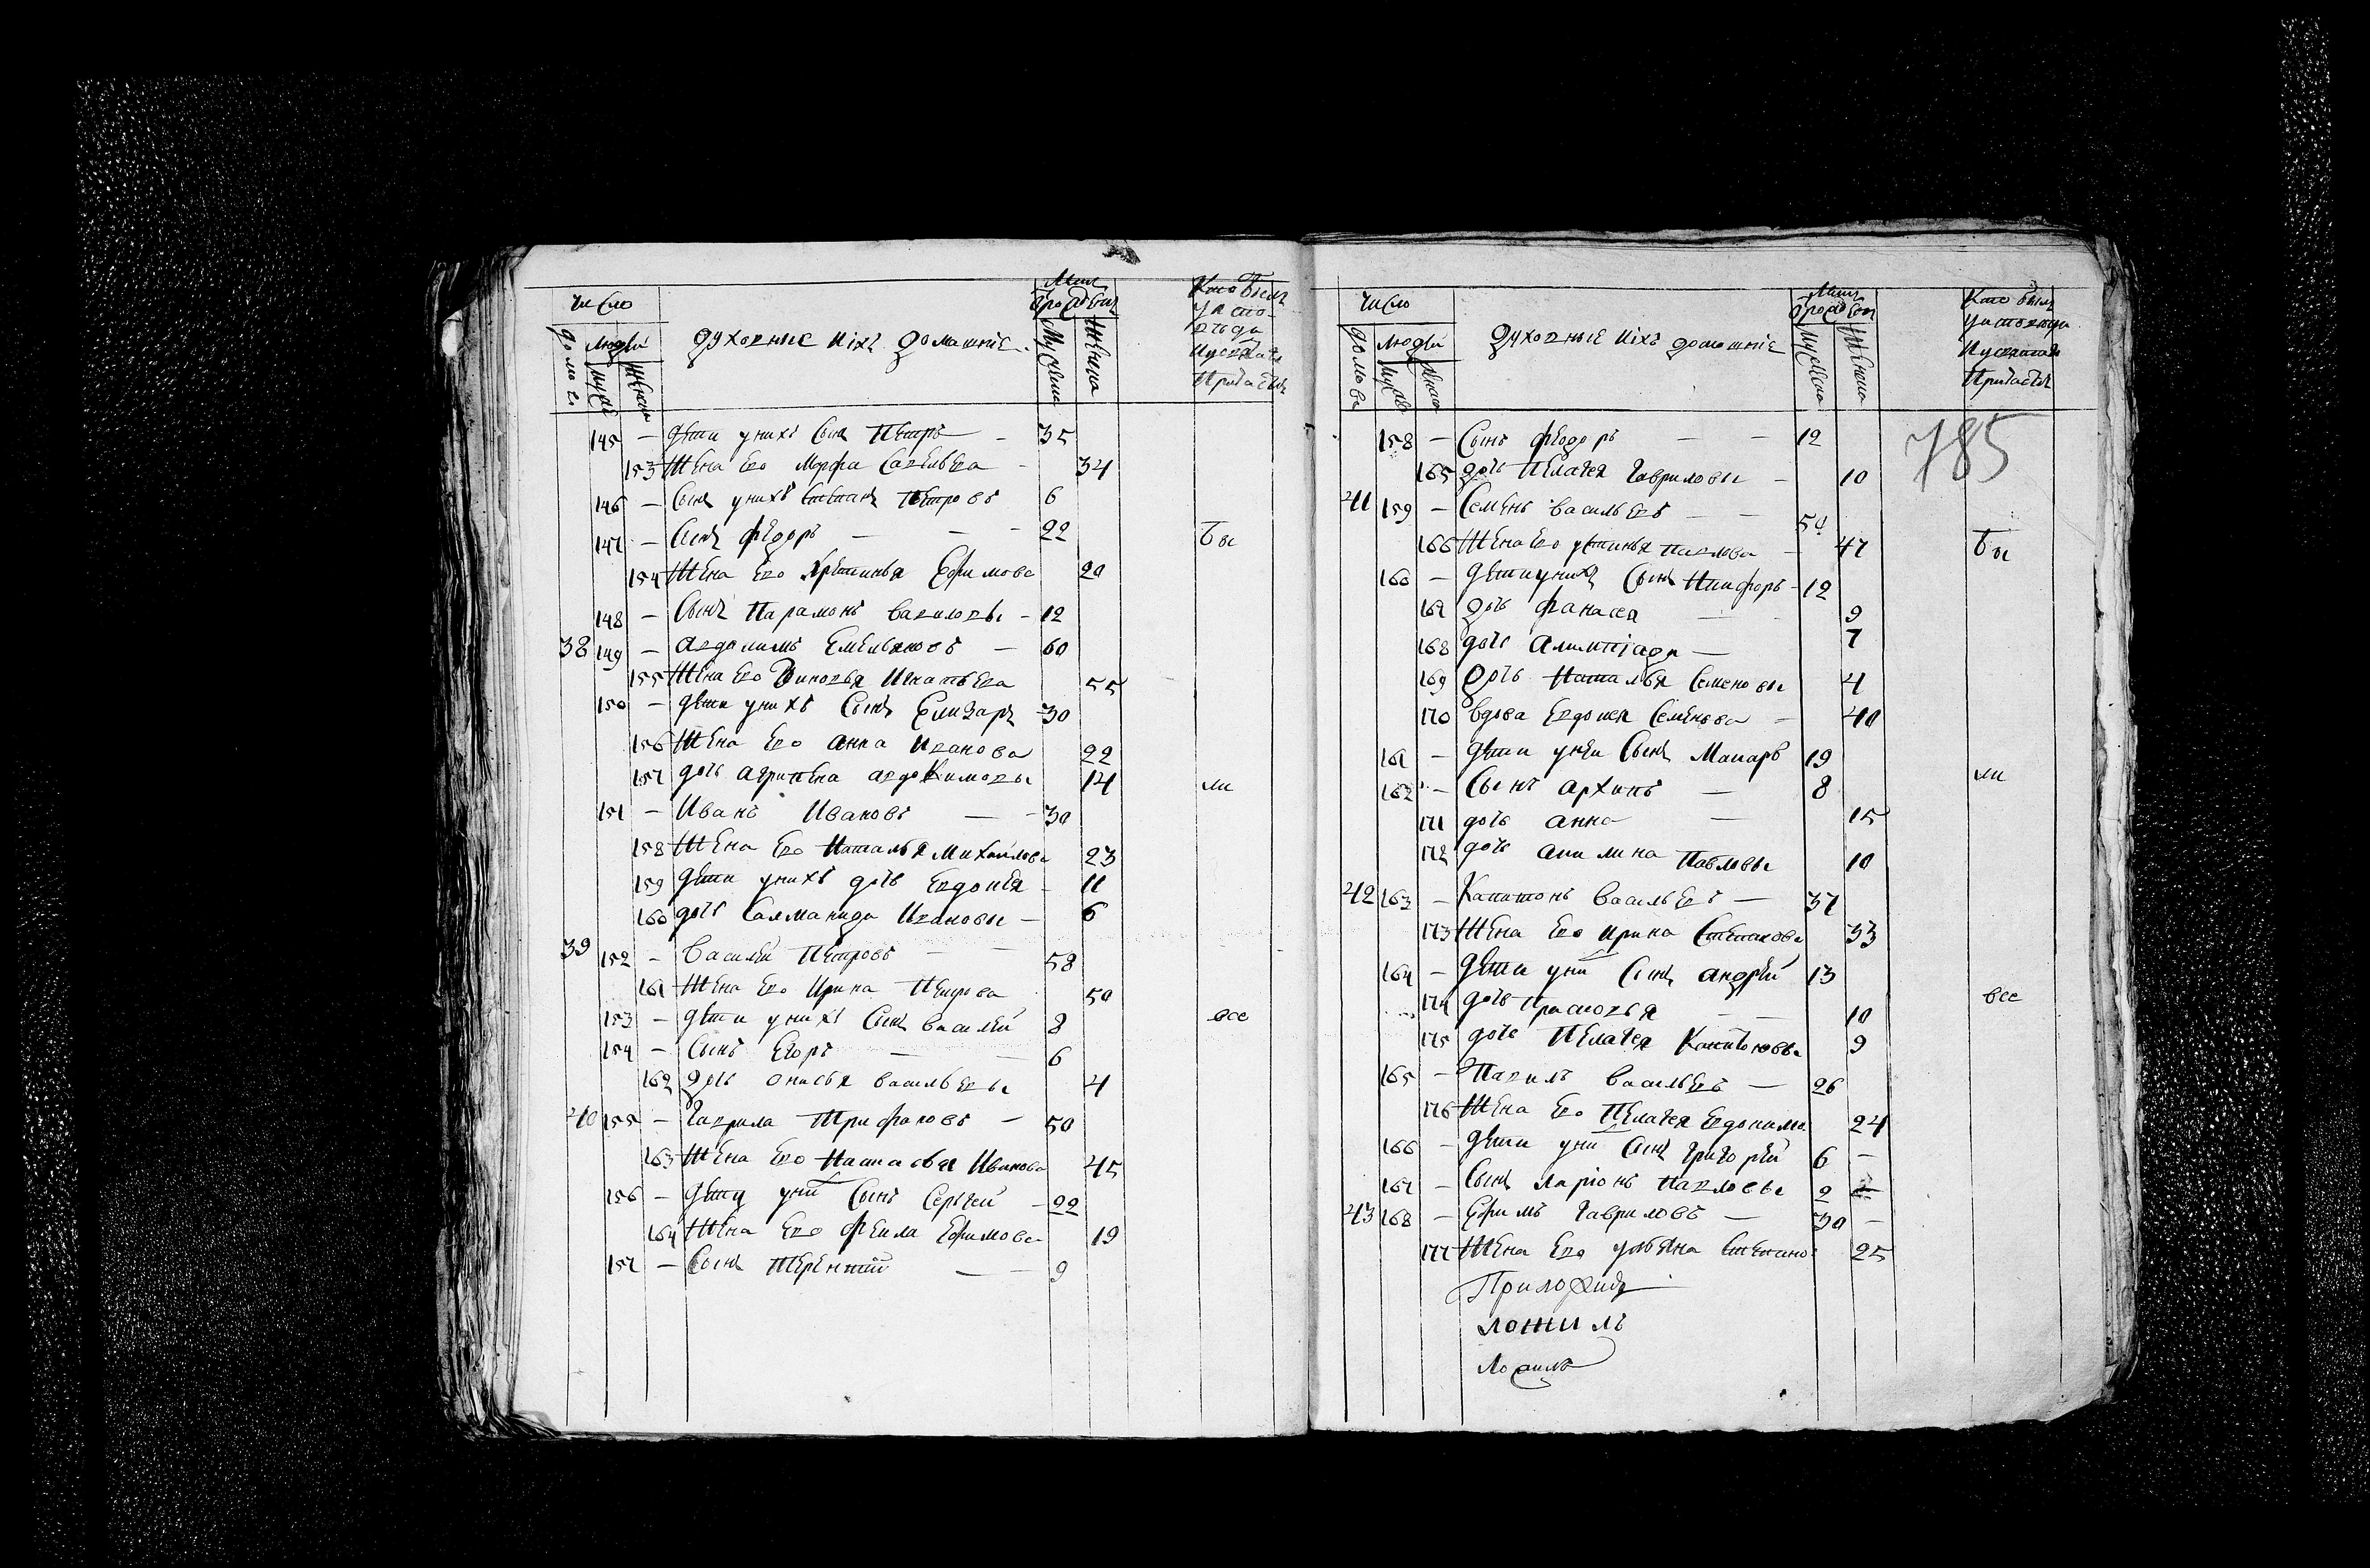 Число
домовъ
людей
муж
женска
духовные ихъ домашніе
Мужеска
Женска
145 — дети у нихъ сынъ Петръ — 35
153 жена Ево Марфа Савельева — 34
146 — сынъ у нихъ Степанъ Петровъ 6
147 — сынъ Федоръ — — 22 бы
154 жена Ево Хрестинья Ефимова 20
148 — сынъ Парамонъ Вавиловы — 12
38 149 — Авдакимъ Емельяновъ — 60
155 жена Ево Зиновья Игнатьева 55
150 — дети у нихъ сынъ Елизаръ — 30
156 жена Ево Анна Иванова 22
157 дочь Агрипена Авдокимовы 14 ли
151 — Иванъ Ивановъ — — 30
158 жена Ево Наталья Михайлова 23
159 дети у нихъ дочь Евдокея — 11
160 дочь Салманида Ивановы — 6
39 152 — Василей Петровъ — 58
161 жена Ево Ирина Петрова 50
153 — дети у нихъ сынъ Василей 8 все
154 — сынъ Егоръ — — 6
162 дочь Онисья Васильевы 4
40 155 — Гаврила Трифановъ — 50
163 жена Ево Настасья Иванова 45
156 — дети у ни сынъ Сергей — 22
164 жена Ево Фекла Ефимова 19
157 — сынъ Терентий — — 9
Число
домовъ
людей
духовные ихъ домашніе
Мужеска
Женска
785
158 — Сынъ Федоръ — — 12
165 дочь Пелагея Гавриловы — 10
41 159 — Семенъ Васильевъ — — 50
166 жена Ево Устинья Павлова — 47 бы
160 — дети у нихъ сынъ Никифоръ — 12
167 дочь Фанасея — 9
168 дочь Алимпіада — 7
169 дочь Наталья Семеновы 4
170 вдова Евдокея Семенова — 40
161 — дети у неи сынъ Макаръ 19 ли
162 — Сынъ Архипъ — 8
171 дочь Анна — 15
172 дочь Акилина Павловы 10
42 163 — Капитонъ Васильевъ — 37
173 жена Ево Ирина Степанова 33
164 — дети у ни сынъ Андрей 13 все
174 дочь Прасковья — — 10
175 дочь Пелагея Капитоновы 9
165 — Павилъ Васильевъ — 26
176 жена Ево Пелагея Евдокимо. 24
166 — дети у ни сынъ Григорей 6 —
167 — Сынъ Ларіонъ Павловы 2
43 168 — Ефимъ Гавриловъ — 30 —
177 жена Ево Ульяна Степано: 25